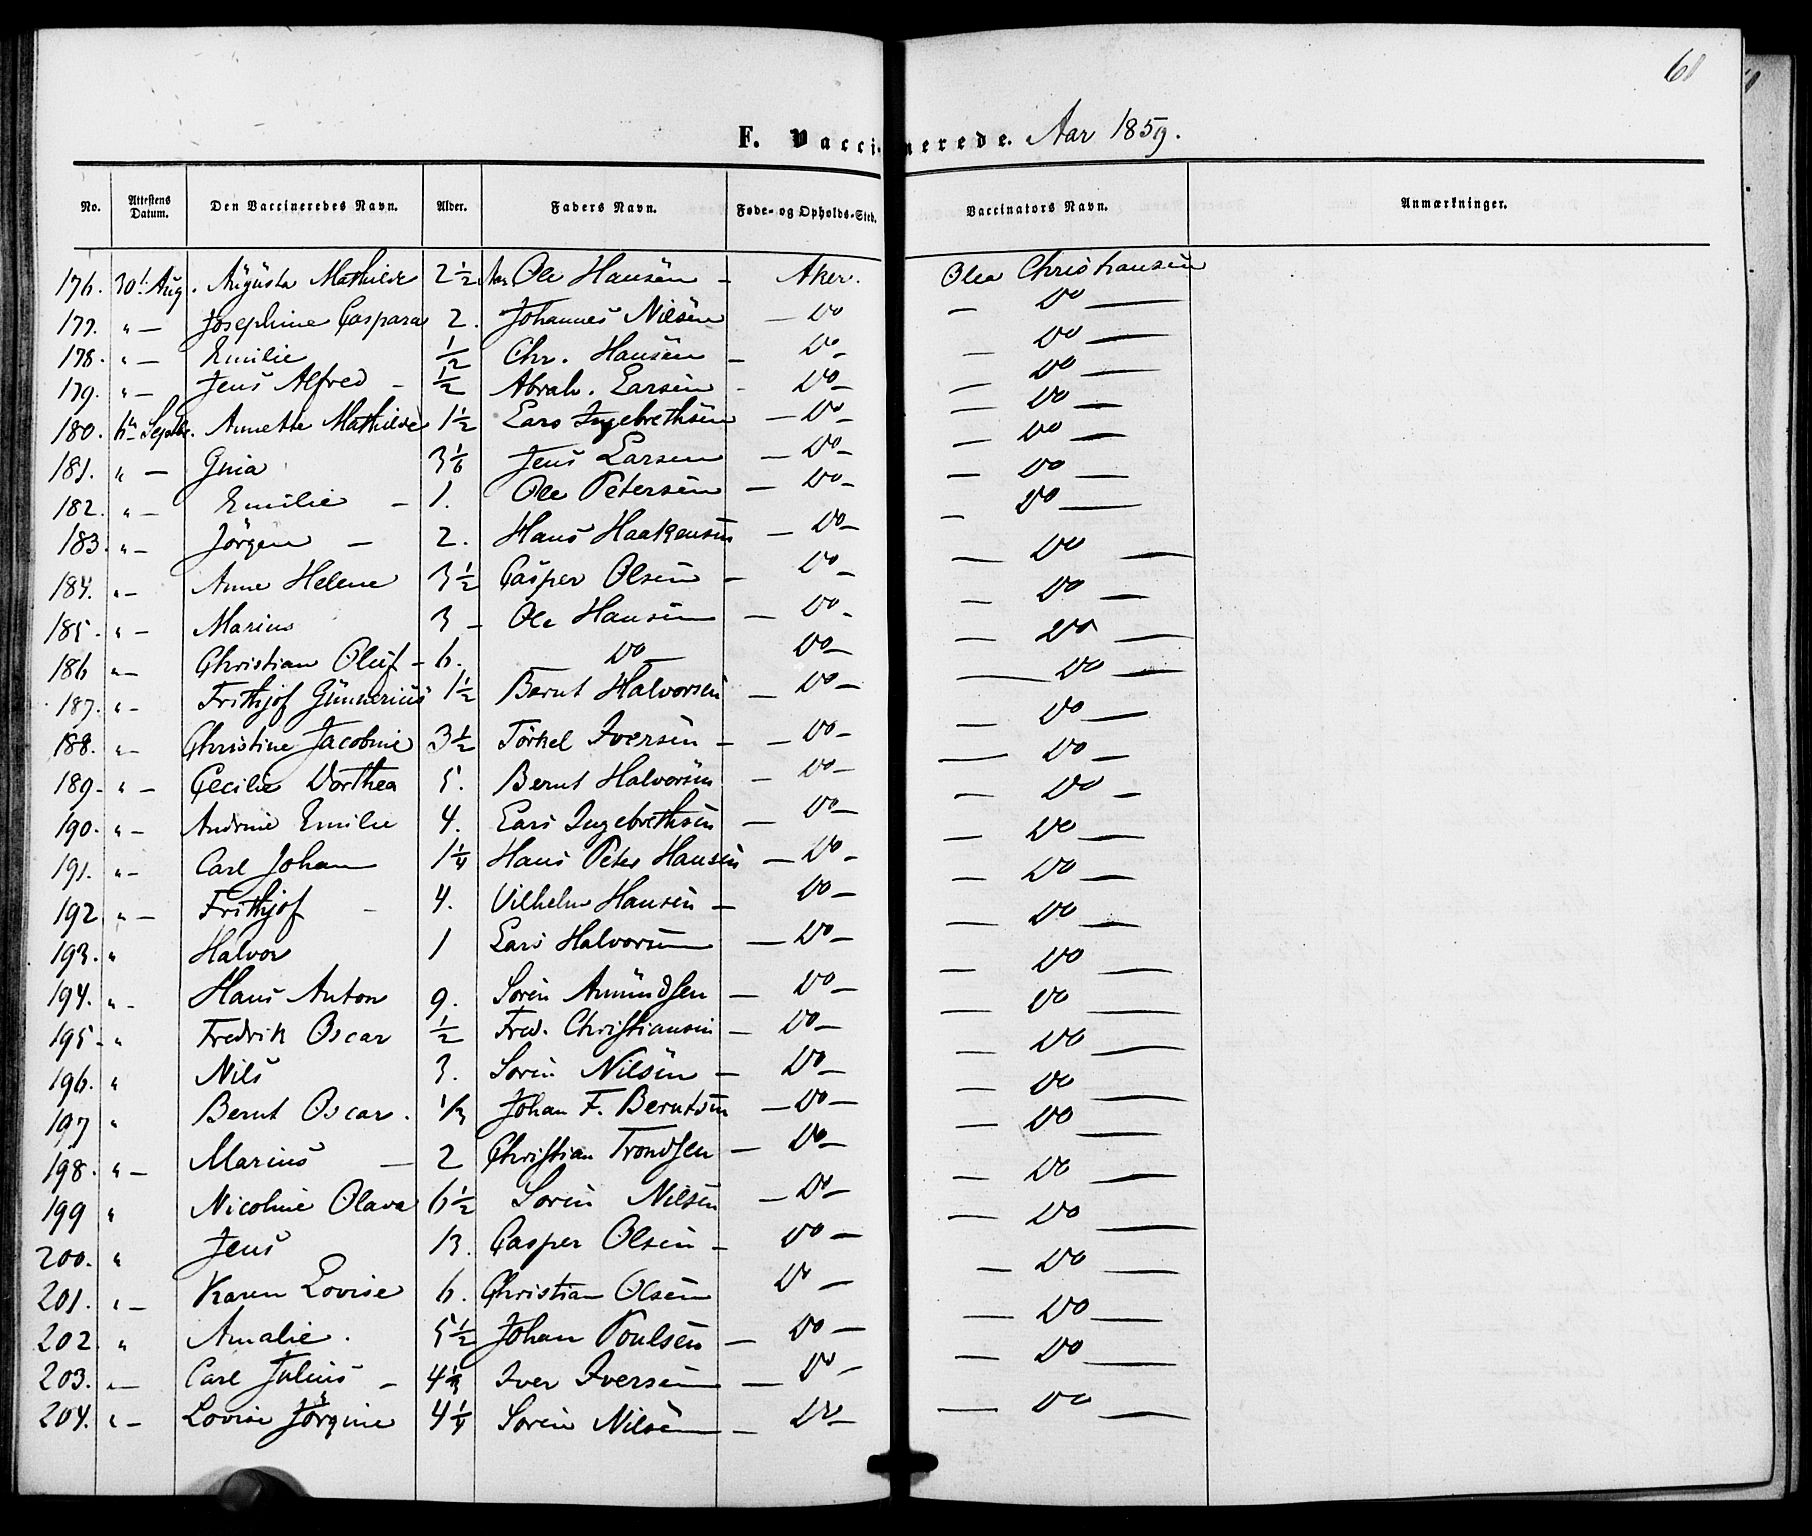 61
F. Vaccinerede. Aar 1859.
No. Attestens Datum. Den Vaccineredes Navn. Alder. Faders Navn. Føde- og Opholds-Sted. Vaccinators Navn. Anmærkninger.
176. 30t Aug. Augusta Mathilde 2 1/2 Aar Ole Hansen - Aker. Olea Christiansen
177. " — Josephine Caspara 2. Johannes Nilsen — Do — Do —
178. " — Emilie 1/2 Chr. Hansen — Do — — Do —
179. " — Jens Alfred - 1/2 Abrah. Larsen - Do — — Do —
180. 6te Septbr. Annette Mathilde 1 1/2 Lars Ingebrethsen — Do — — Do —
181. " — Gina 3 1/6 Jens Larsen — Do — — Do —
182. " — Emilie - 1. Ole Petersen — Do — — Do —
183. " — Jörgen — 2. Hans Haakensen — Do — — Do —
184. " — Anne Helene 3 1/2 Casper Olsen — Do — — Do —
185. " — Marius 3 - Ole Hansen — Do - — Do —
186 " — Christian Oluf - 6. Do — Do — — Do —
187. " - Frithjof Gunnerius 1 1/2 Bernt Halvorsen — Do — — Do —
188. " - Christine Jacobine 3 1/2 Törkel Iversen — Do — — Do —
189. " — Cecilie Dorthea 5. Bernt Halvorsen — Do — — Do —
190. " — Andrine Emilie 4. Lars Ingebrethsen — Do — — Do —
191. " — Carl Johan 1 1/4 Hans Peter Hansen — Do — — Do —
192. " — Frithjof - 4. Vilhelm Hansen — Do — — Do —
193. " Halvor 1 Lars Halvorsen — Do — — Do —
194. " - Hans Anton 9. Soren Amundsen — Do — — Do —
195. " Fredrik Oscar 1/2 Fred. Christiansen — Do — — Do —
196. " Nils 3. Soren Nilsen — Do — — Do —
197 " Bernt Oscar. 1/3 Johan F. Berntsen — Do — — Do —
198. " — Marius — 2 Christian Trondsen — Do — — Do —
199 " Nicoline Olava 6 1/2 Soren Nilsen — Do — — Do —
200. " Jens 13. Casper Olsen - Do — — Do —
201. " — Karen Lovise 6. Christian Olsen Do — — Do —
202. " Amalie. 5 1/2 Johan Poulsen — Do — — Do —
203. " — Carl Julius - 4 1/3 Iver Iversen — Do - — Do —
204. " - Lovise Jörgine 4 1/4 Soren Nilsen — Do — — Do —